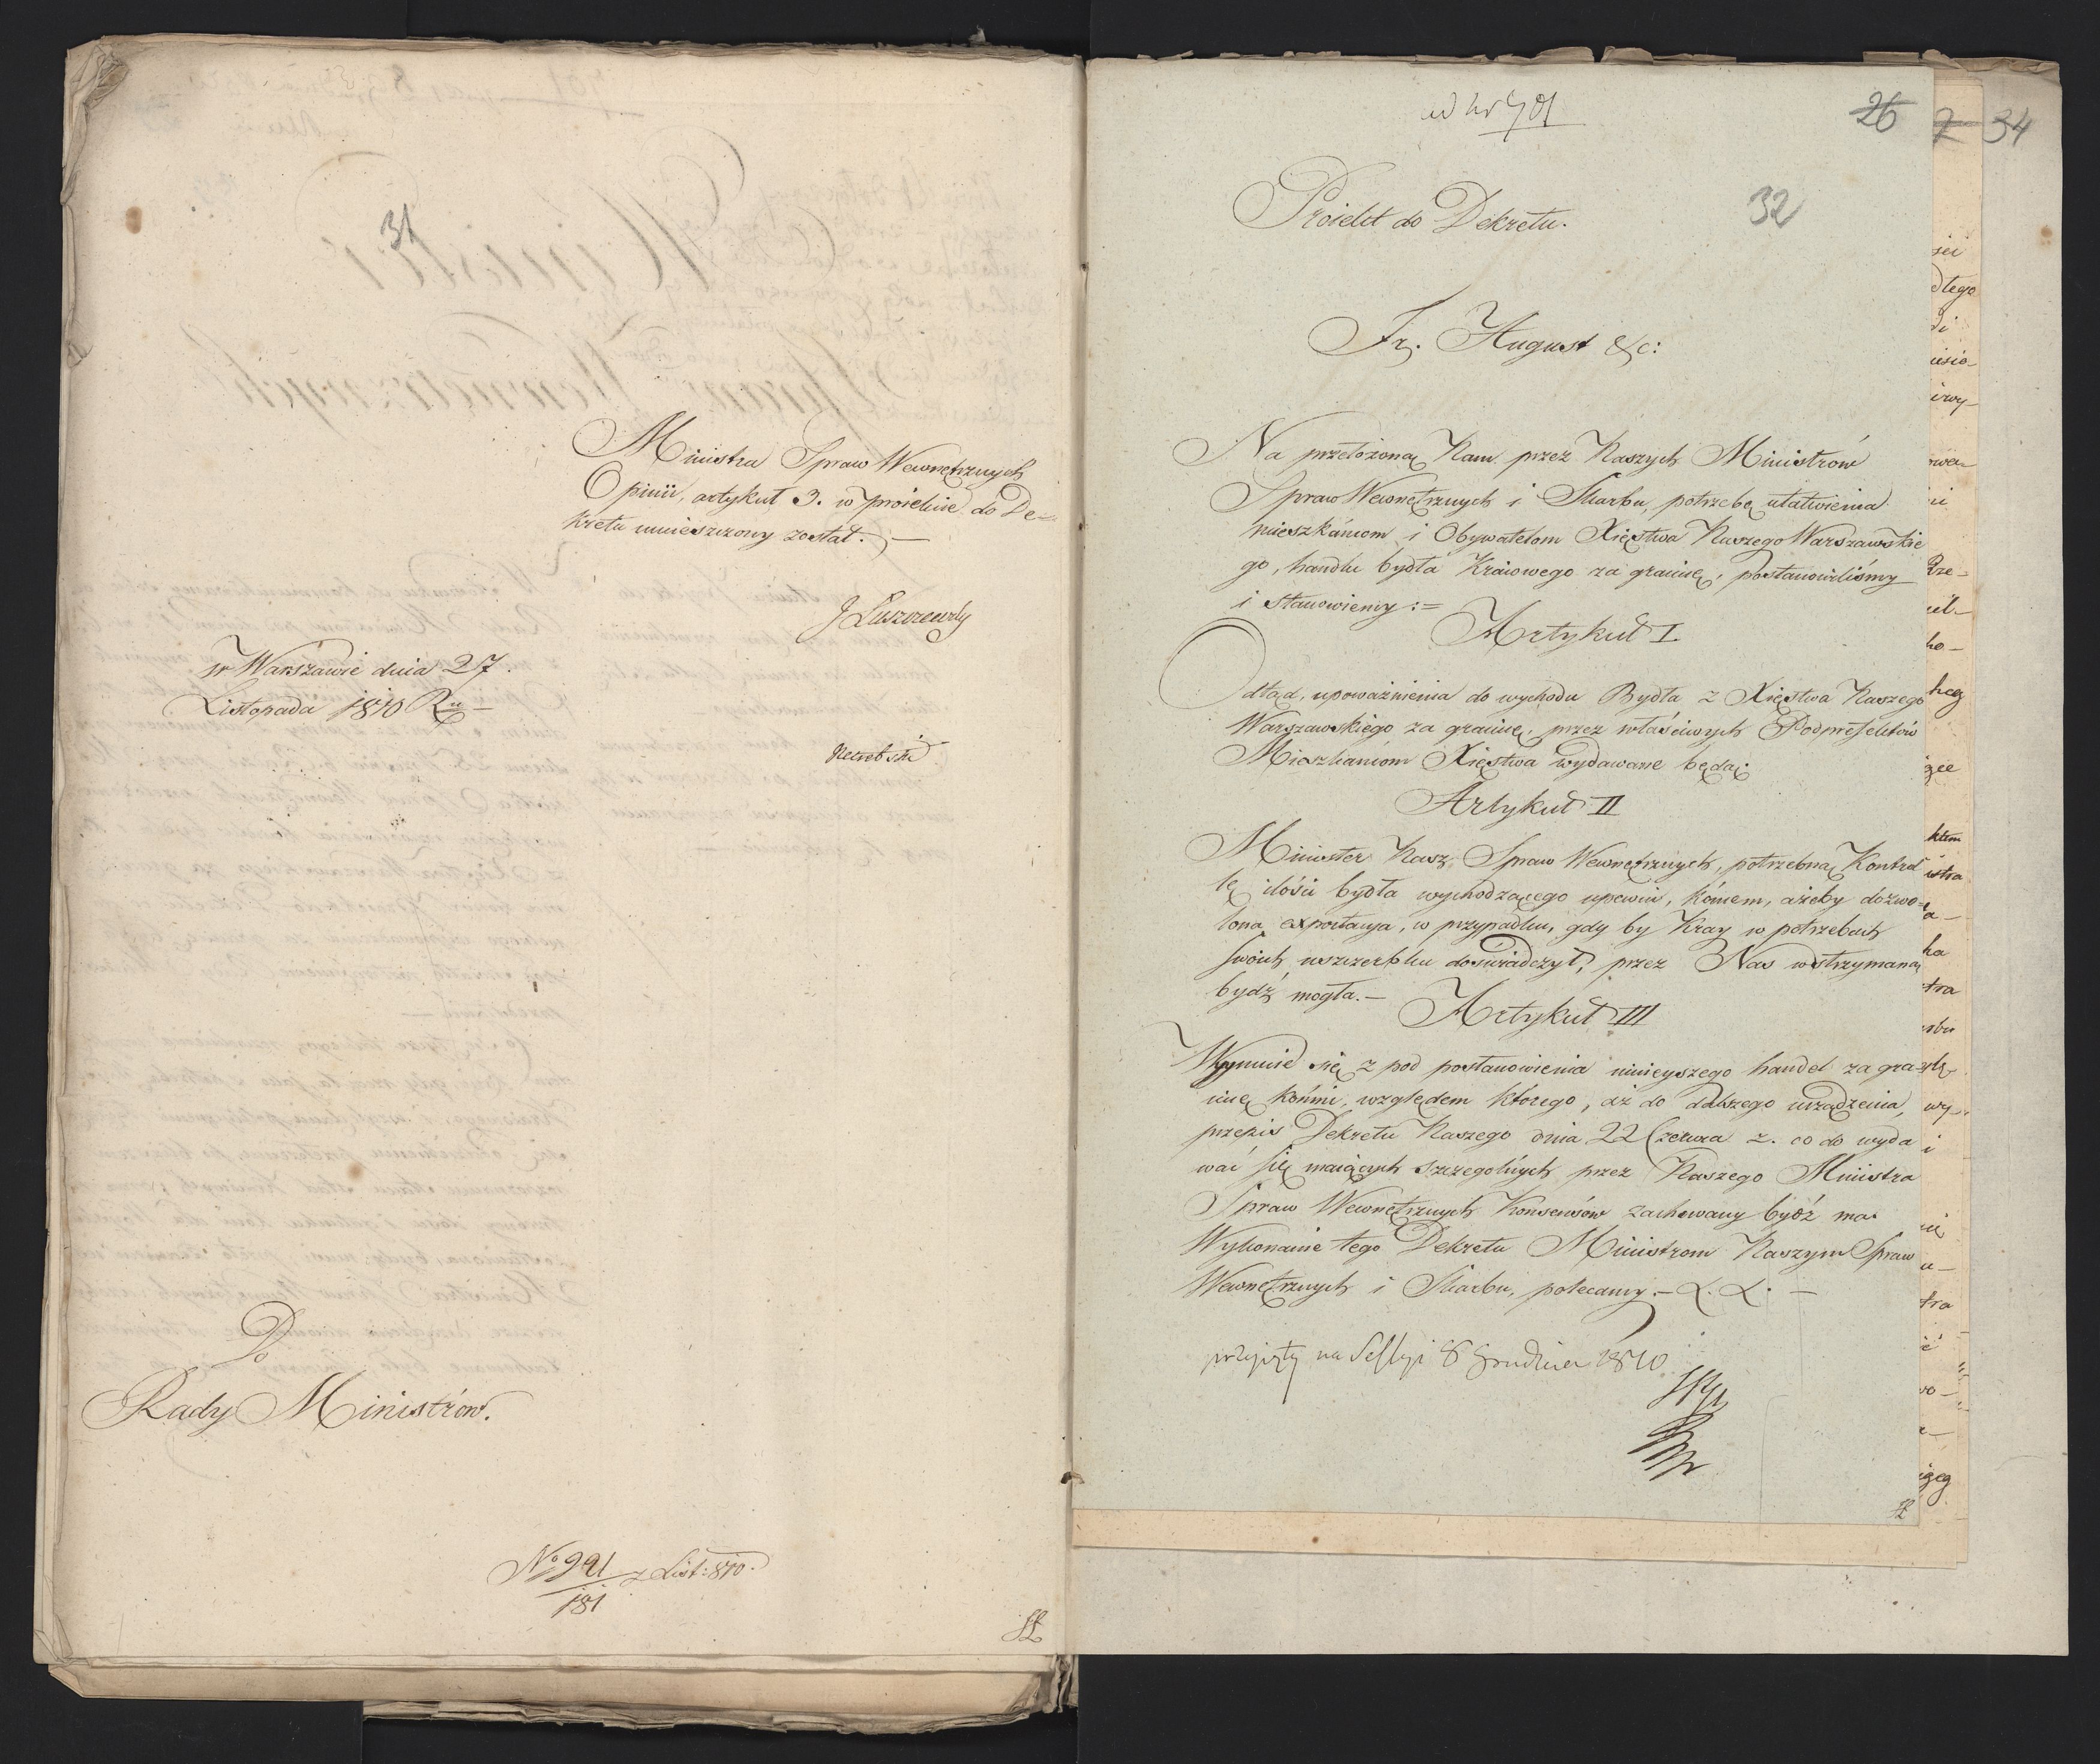 31
Ministra Spraw Wewnętrznych
Opinii, artykuł 3. w proiekcie do De-
kretu umieszczony został. —
J Łuszczewski
w Warszawie dnia 27.
Listopada 1810 Ru —
Do
Rady Ministrów.
No 991/181 z List: 810.
ad Nr 701
26
7
34
32
Proiekt do Dekretu.
Fr. August &c:
Na przełożoną Nam przez Naszych Ministrów
Spraw Wewnętrznych i Skarbu, potrzebę ułatwienia
mieszkańcom i Obywatelom Xięstwa Naszego Warszawskie
go, handlu bydła Kraiowego za granicę, postanowiliśmy
i stanowiemy :=
Artykuł I
Odtąd, upoważnienia do wychodu Bydła z Xięstwa Naszego
Warszawskiego za granicę, przez właściwych Podprefektów
Mieszkańcom Xięstwa wydawane będą.
Artykuł II
Minister Nasz Spraw Wewnętrznych, potrzebną Kontrol
lę ilości bydła wychodzącego upewni, końcem, ażeby dozwo-
lona exportacya, w przypadku, gdy by Kray w potrzebach
swoich uszczerbku doświadczył, przez Nas wstrzymaną
bydź mogła. —
Artykuł III
Wyimuie się z pod postanowienia ninieyszego handel za gra-
nicę końmi, względem którego, aż do dalszego urządzenia,
przepis Dekretu Naszego dnia 22 Czerwca z. co do wyda
wać się maiących szczególnych przez Naszego Ministra
Spraw Wewnętrznych Konsensów zachowany bydź ma.
Wykonanie tego Dekretu Ministrom Naszym Spraw
Wewnętrznych i Skarbu, polecamy. —
przyięty na Sessyi 8 Grudnia 1810